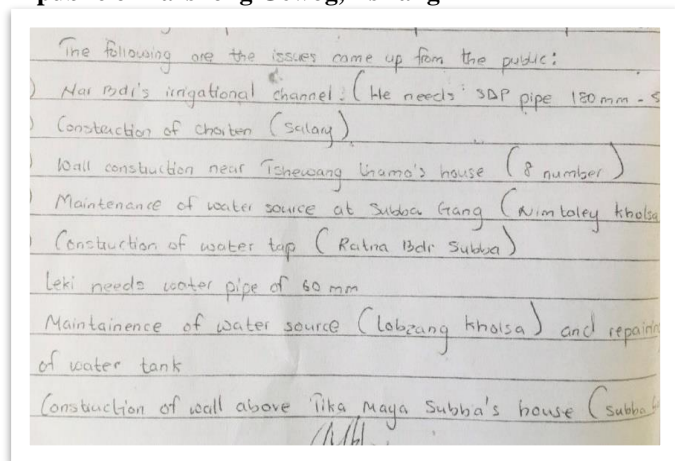 The following are the issues came up from the public:
) Nar Bdr's irrigational channel. (He needs SDP pipe 180 mm - 5
) Constraction of chorten (Salary)
) Wall constuction near Tshewang Lhamo's house (8 number)
) Maintenance of water source at Subba Gang (Nimtoley kholsa
) Constuction of water tap (Ratna Bdr Subba)
Leki needs water pipe of 60 mm
Maintainence of water source (Lobzang kholsa) and repairin
of water tank
Constuction of wall above Tika Maya Subba's house (subba